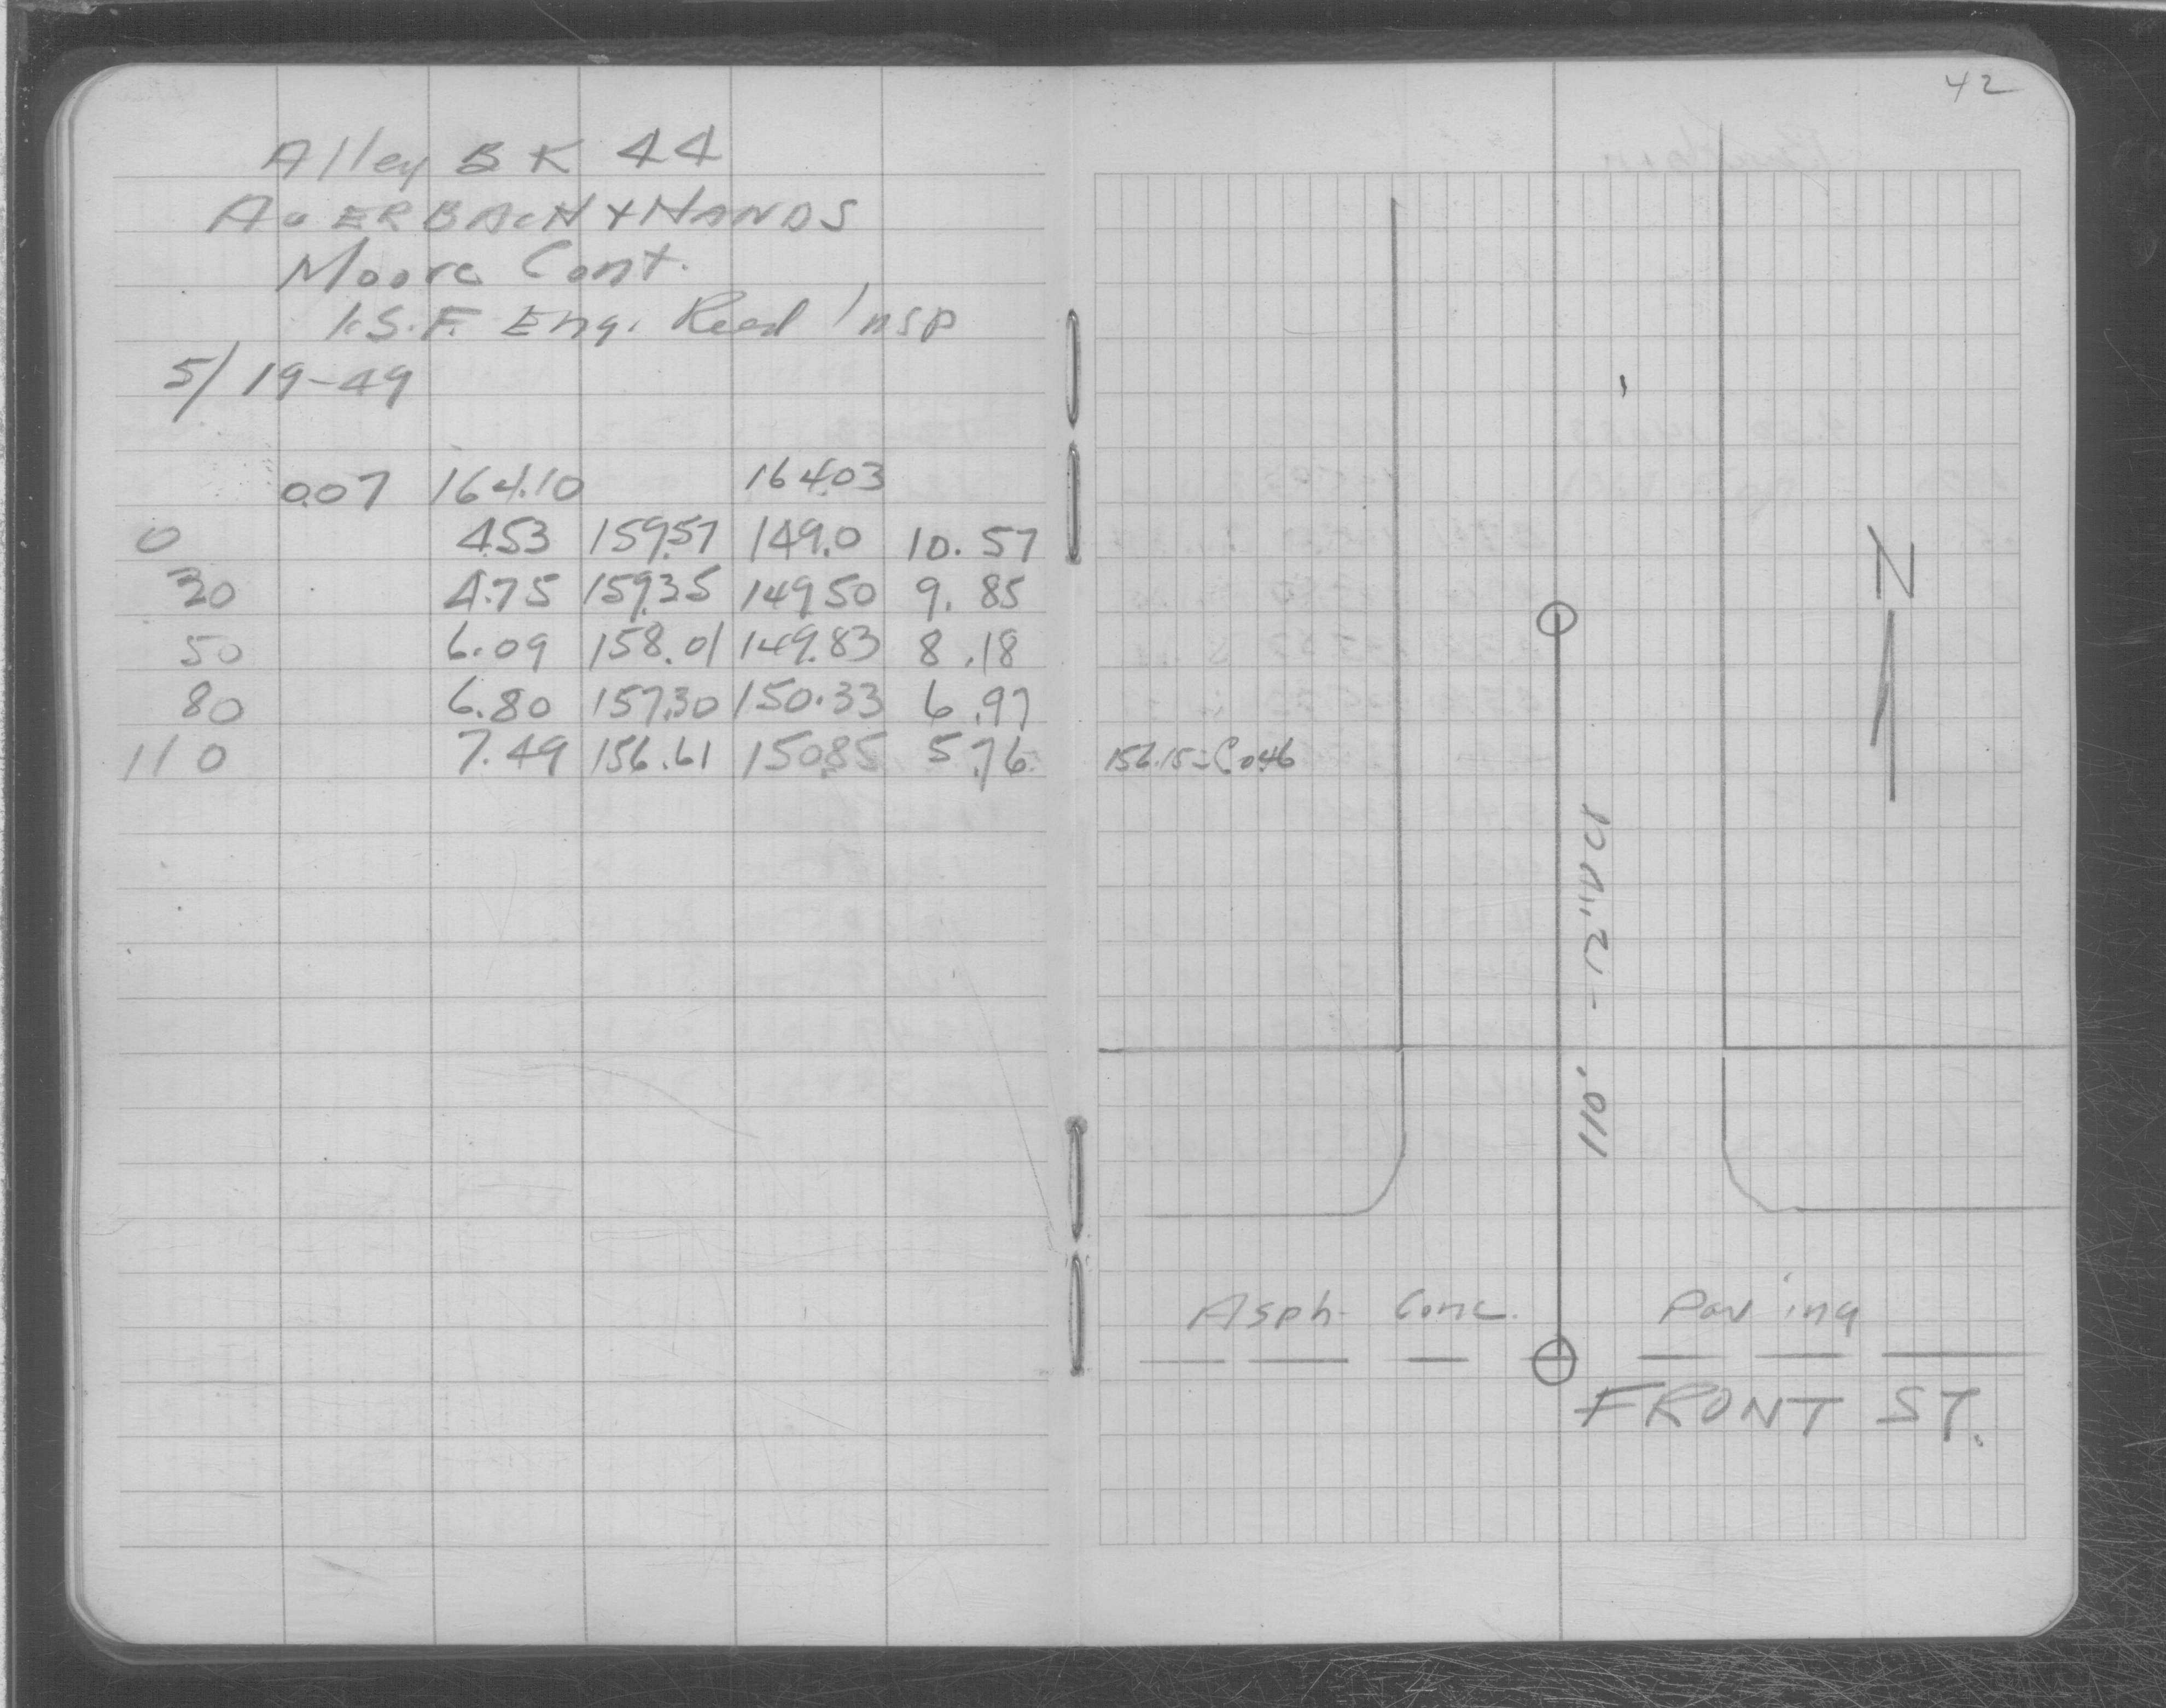 Alley BK 44
AUERBACH + HANDS
Moore Cont.
I.S.F. Eng. Reed Insp
5/19-49
0.07 164.10 164.03
0 4.53 159.57 149.0 10.57
30 4.75 159.35 149.50 9.85
50 6.09 158.01 149.83 8.18
80 6.80 157.30 150.33 6.97
110 7.49 156.61 150.85 5.76 156.15=C0.46
42
N
110' - 12" VCP
Asph. Conc. Paving
FRONT ST.